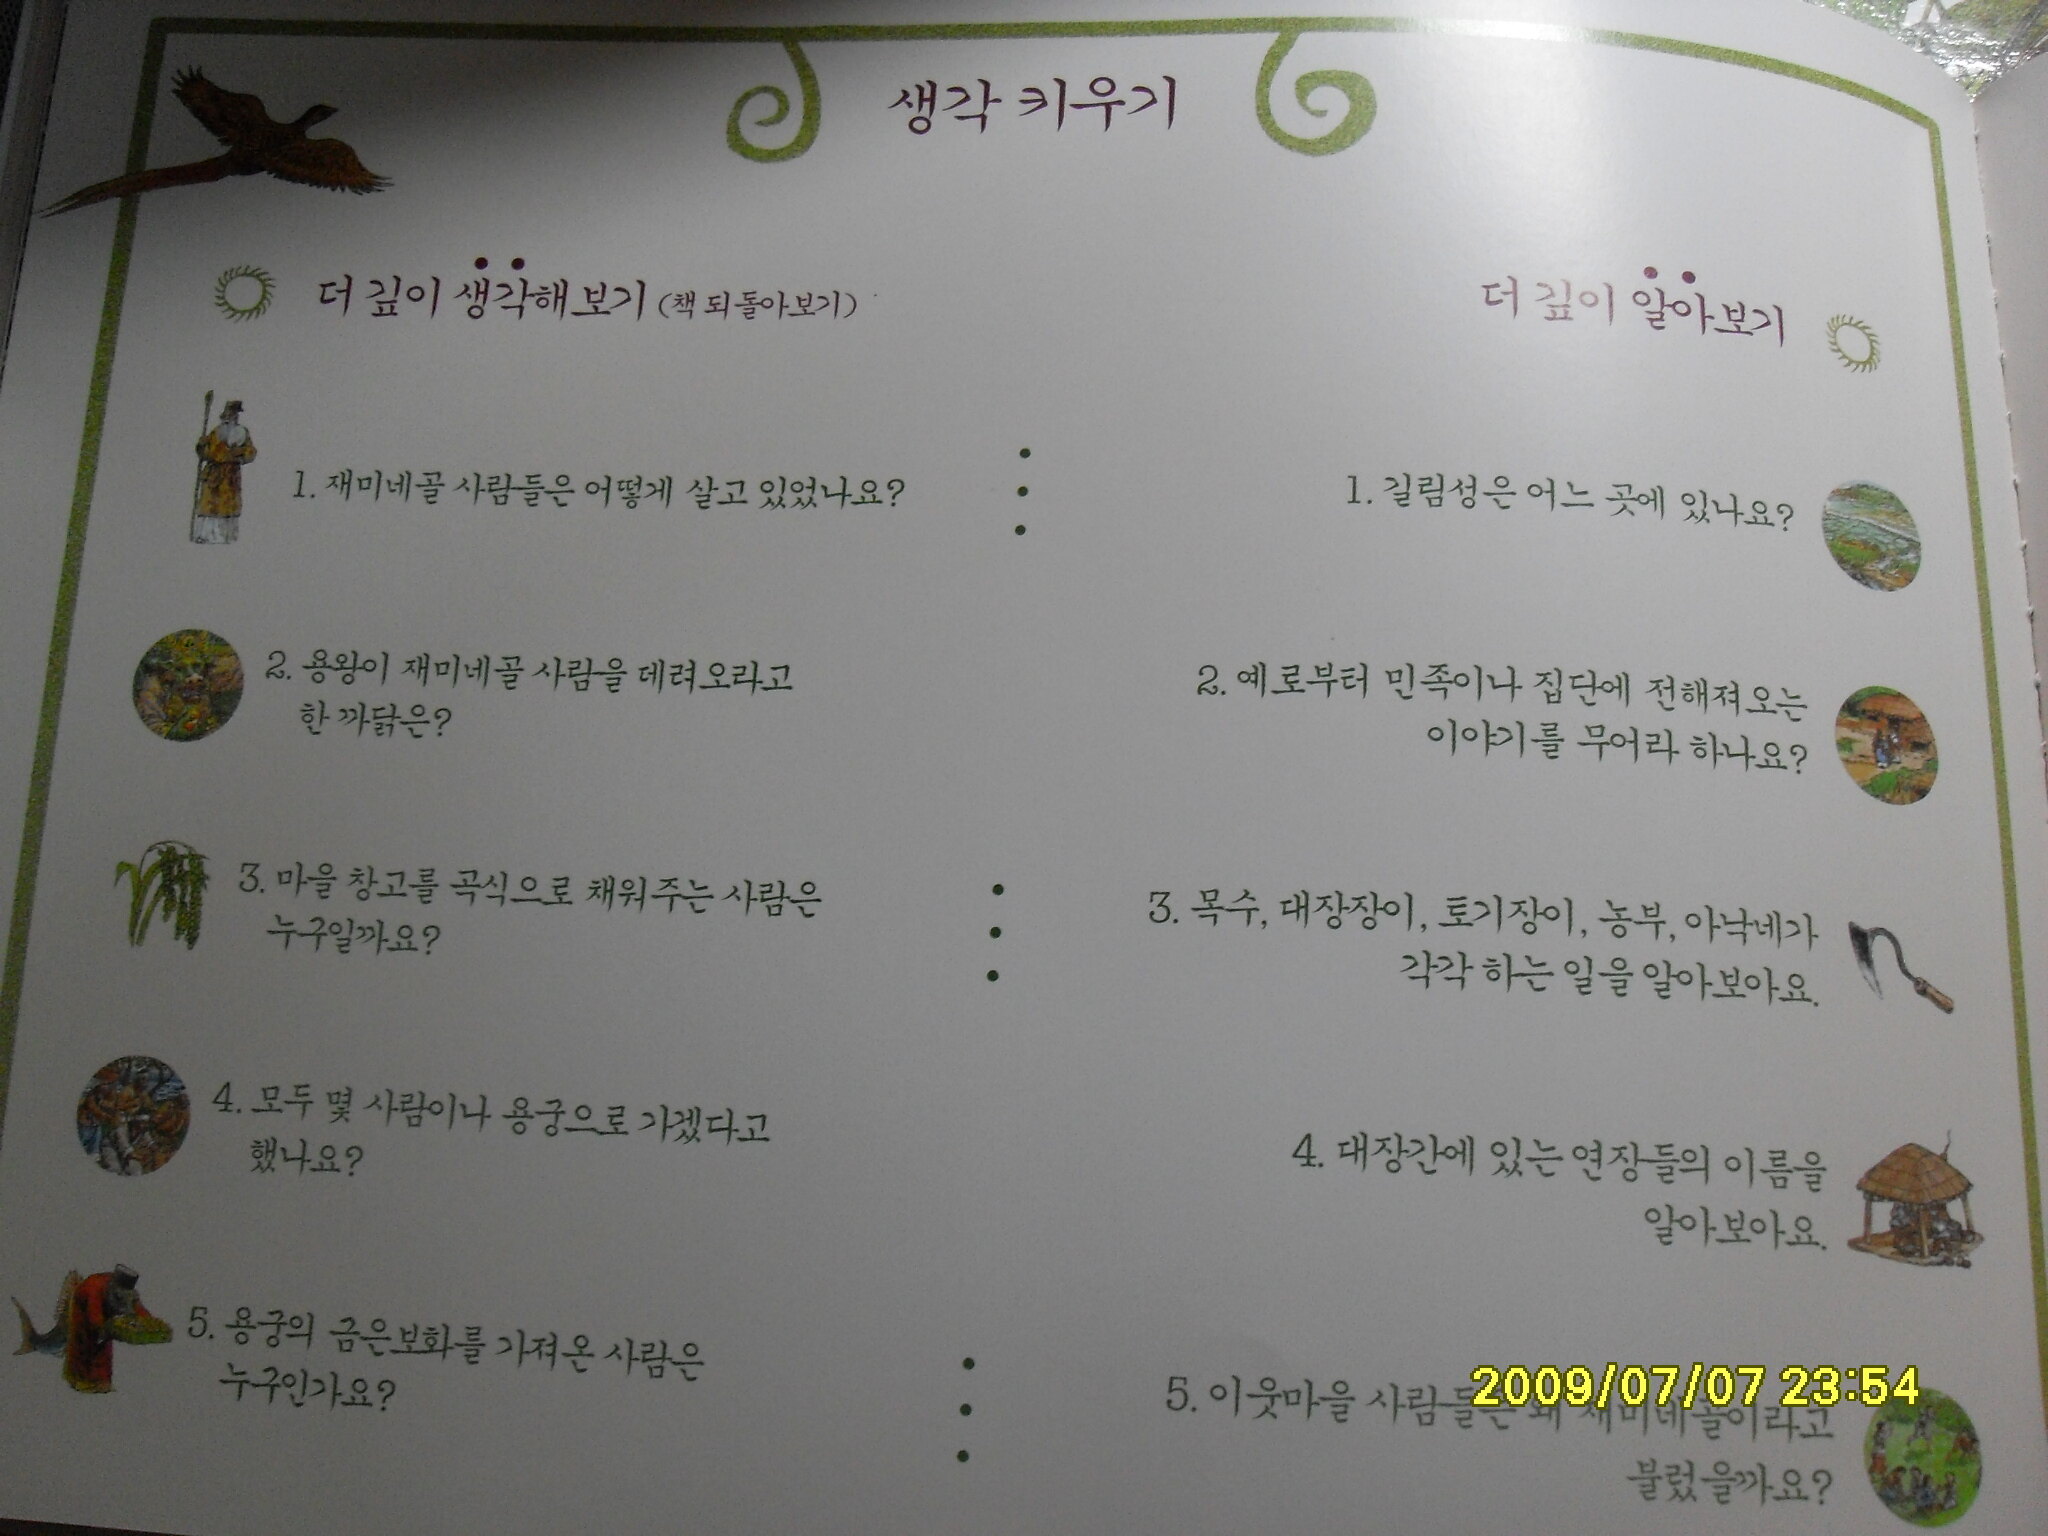 생각 키우기
더 깊이 생각해보기 (책 되돌아보기)
1. 재미네골 사람들은 어떻게 살고 있었나요?
2. 용왕이 재미네골 사람을 데려오라고
한 까닭은?
3. 마을 창고를 곡식으로 채워주는 사람은
누구일까요?
4. 모두 몇 사람이나 용궁으로 가겠다고
했나요?
5. 용궁의 금은보화를 가져온 사람은
누구인가요?
더 깊이 알아보기
1. 길림성은 어느 곳에 있나요?
2. 예로부터 민족이나 집단에 전해져오는
이야기를 무어라 하나요?
3. 목수, 대장장이, 토기장이, 농부, 아낙네가
각각 하는 일을 알아보아요.
4. 대장간에 있는 연장들의 이름을
알아보아요.
5. 이웃마을 사람들은 왜 재미네골이라고
불렀을까요?
2009/07/07 23:54